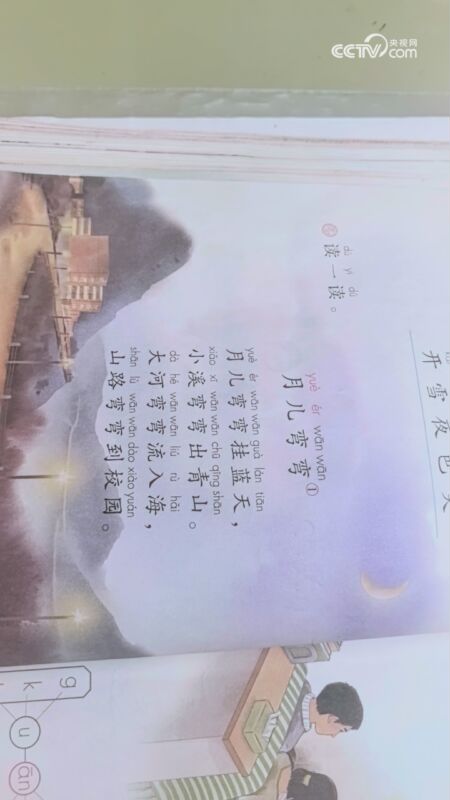 CCTV 央视网
com
dú yì dú
读一读。
yuè ér wān wān
月儿弯弯①
yuè ér wān wān guà lán tiān
月儿弯弯挂蓝天，
xiǎo xī wān wān chū qīng shān
小溪弯弯出青山。
dà hé wān wān liú rù hǎi
大河弯弯流入海，
shān lù wān wān dào xiào yuán
山路弯弯到校园。
开雪夜巴
g
k
u
ān